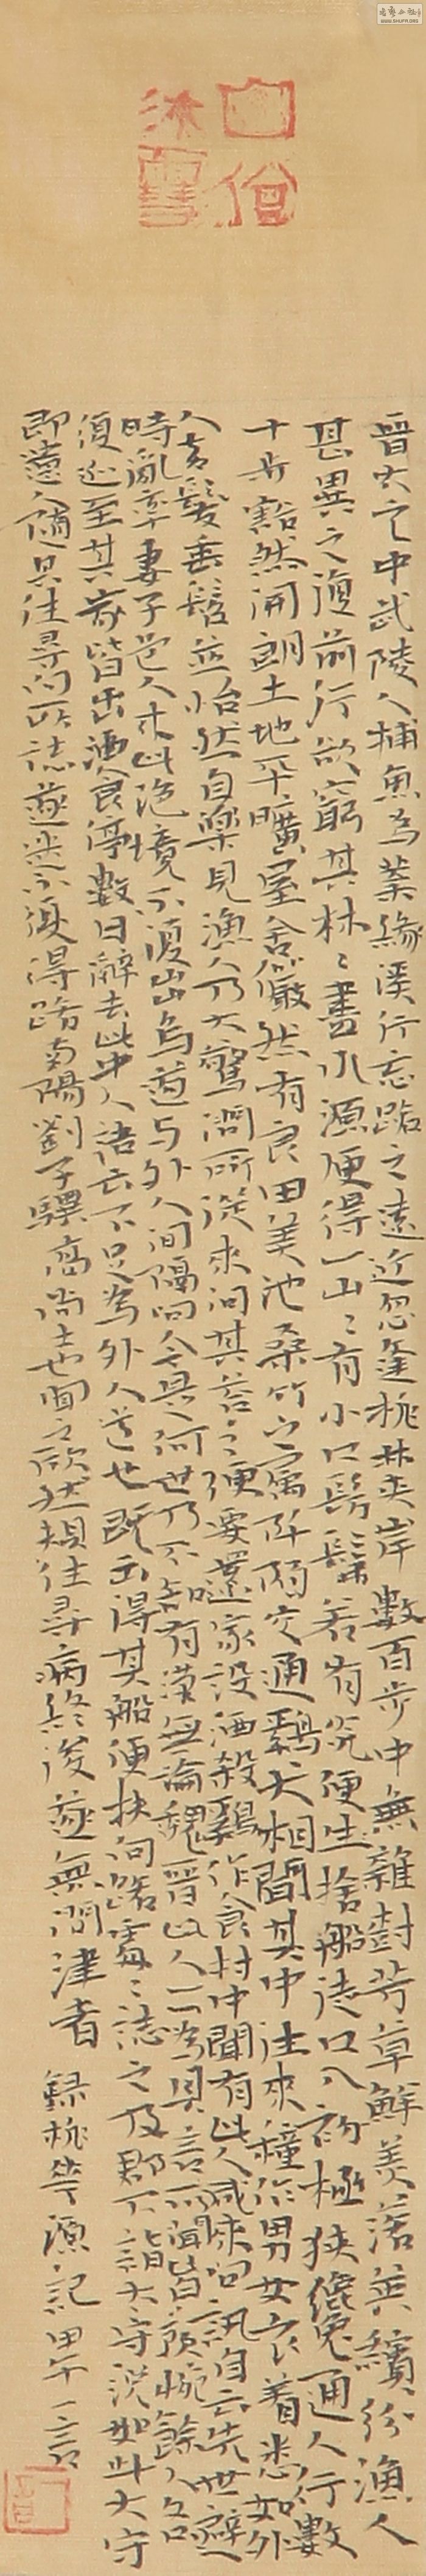 晉太元中武陵人捕魚為業緣溪行忘路之遠近忽逢桃林夾岸數百步中無雜樹芳草鮮美落英繽紛漁人
甚異之復前行欲窮其林〻盡水源便得一山〻有小口髣髴若有光便捨船從口入初極狹纔通人行數
十步豁然開朗土地平曠屋舍儼然有良田美池桑竹之屬阡陌交通鷄犬相聞其中往來種作男女衣着悉如外
人黃髮垂髫並怡然自樂見漁人乃大驚問所從來問其荅之便要還家設酒殺鷄作食村中聞有此人咸來問訊自云先世避
時亂率妻子邑人來此絶境不復出焉遂与外人間隔問今是何世乃不知有漢無論魏晉此人一一為具言所聞皆歎惋餘人各
復延至其家皆出酒食停數日辭去此中人語云不足為外人道也既出得其船便扶向路處〻誌之及郡下詣太守說如此太守
即遣人隨其往尋向所誌遂迷不復得路南陽劉子驥高尚士也聞之欣然規往尋病終後遂無問津者 錄桃花源記 甲午 一言